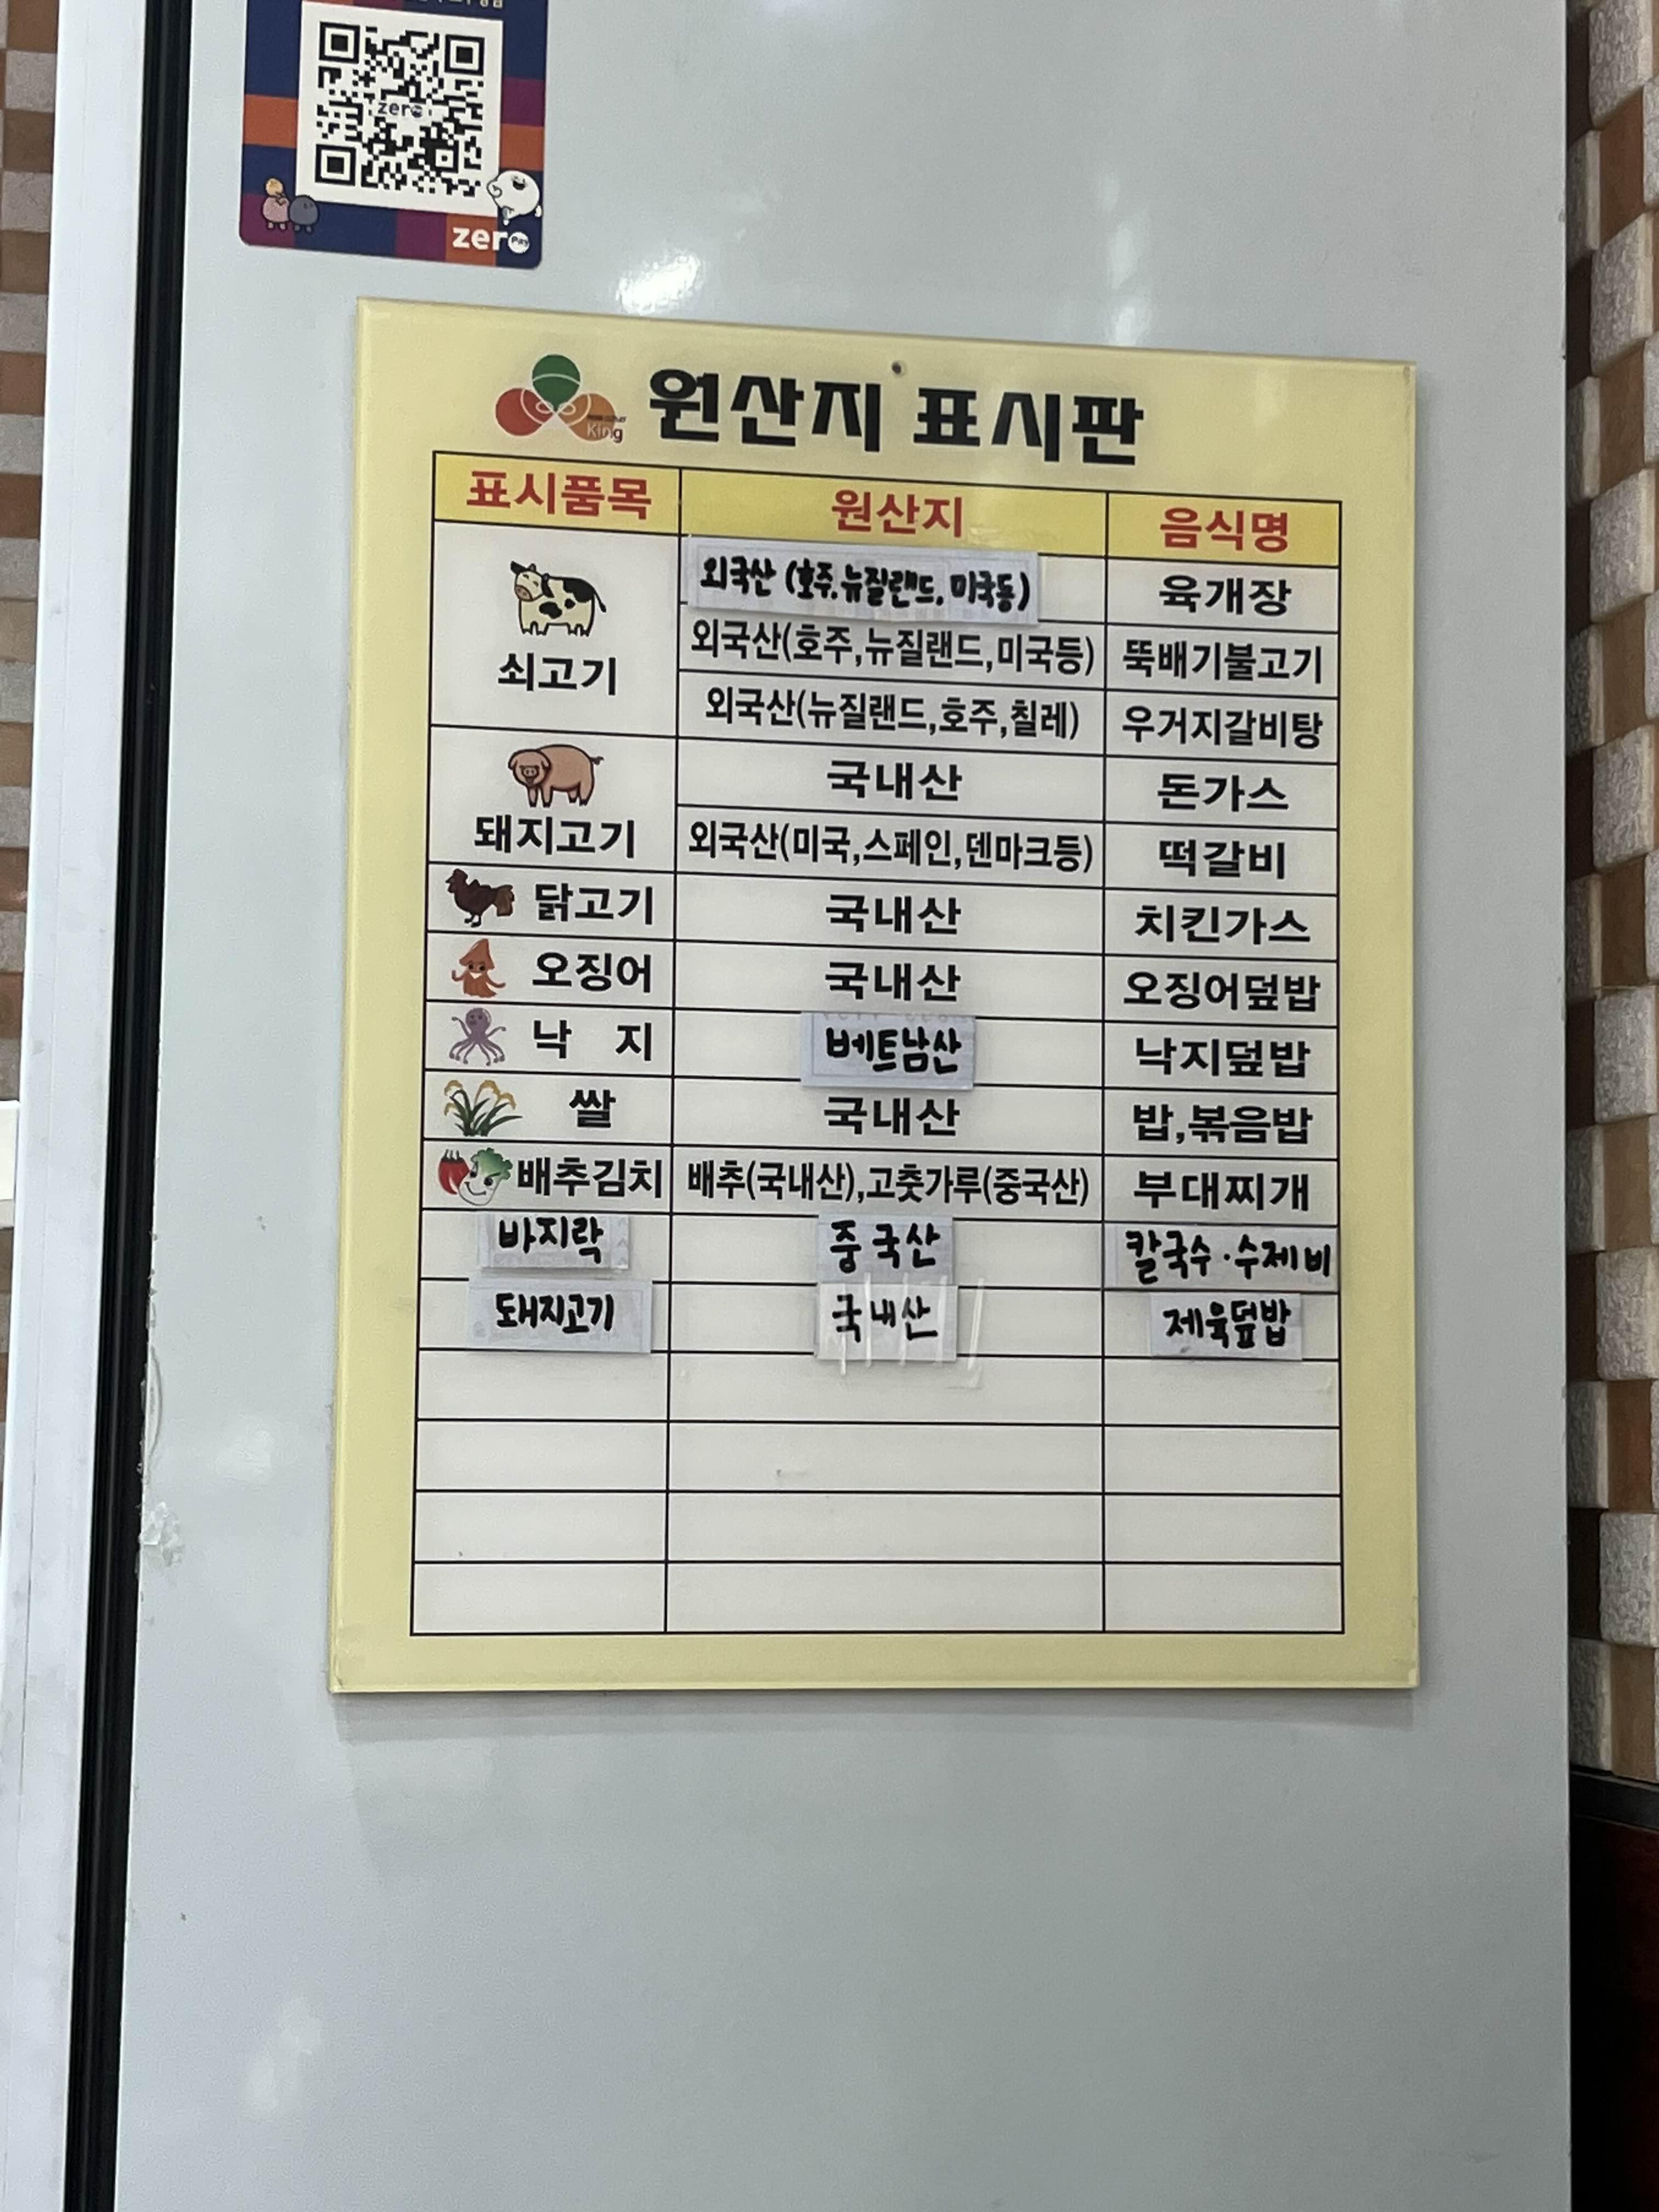 zero
zero Pay
King
원산지 표시판
표시품목 원산지 음식명
쇠고기 외국산 (호주.뉴질랜드, 미국등) 육개장
외국산(호주,뉴질랜드,미국등) 뚝배기불고기
외국산(뉴질랜드,호주,칠레) 우거지갈비탕
돼지고기 국내산 돈가스
외국산(미국,스페인,덴마크등) 떡갈비
닭고기 국내산 치킨가스
오징어 국내산 오징어덮밥
낙 지 베트남산 낙지덮밥
쌀 국내산 밥,볶음밥
배추김치 배추(국내산),고춧가루(중국산) 부대찌개
바지락 중국산 칼국수·수제비
돼지고기 국내산 제육덮밥